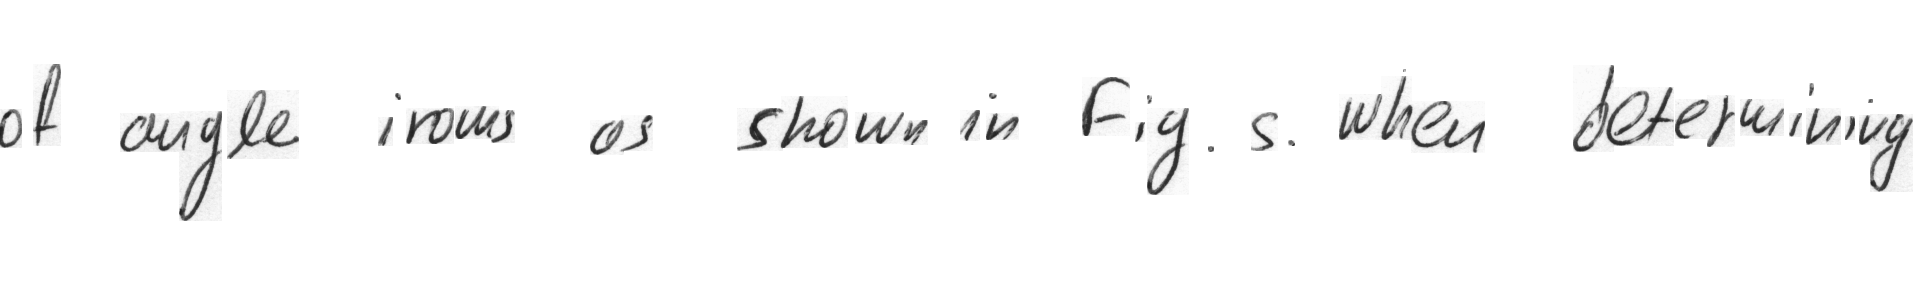 of angle irons as shown in Fig. s. when determining